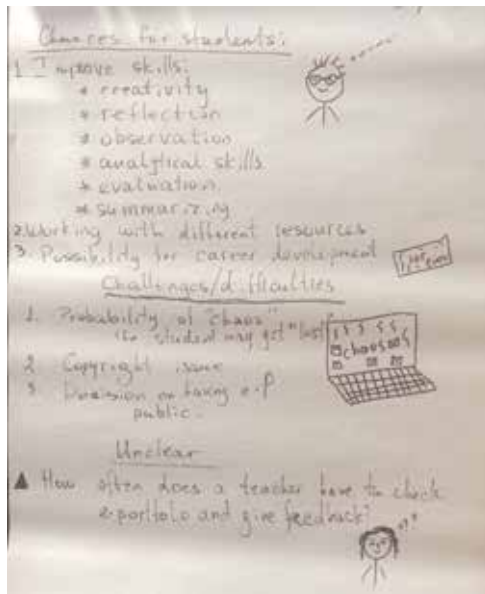 Chances for students:
1. Improve skills:
* creativity
* reflection
* observation
* analytical skills
* evaluation
* summarizing
2. Working with different resources
3. Possibility for career development
Challenges/difficulties
1. Probability of "chaos"
(the student may get "lost")
chaos
2. Copyright issue
3. Decision on making e-P
public.
Unclear
▲ How often does a teacher have to check
e-portfolio and give feedback?
??